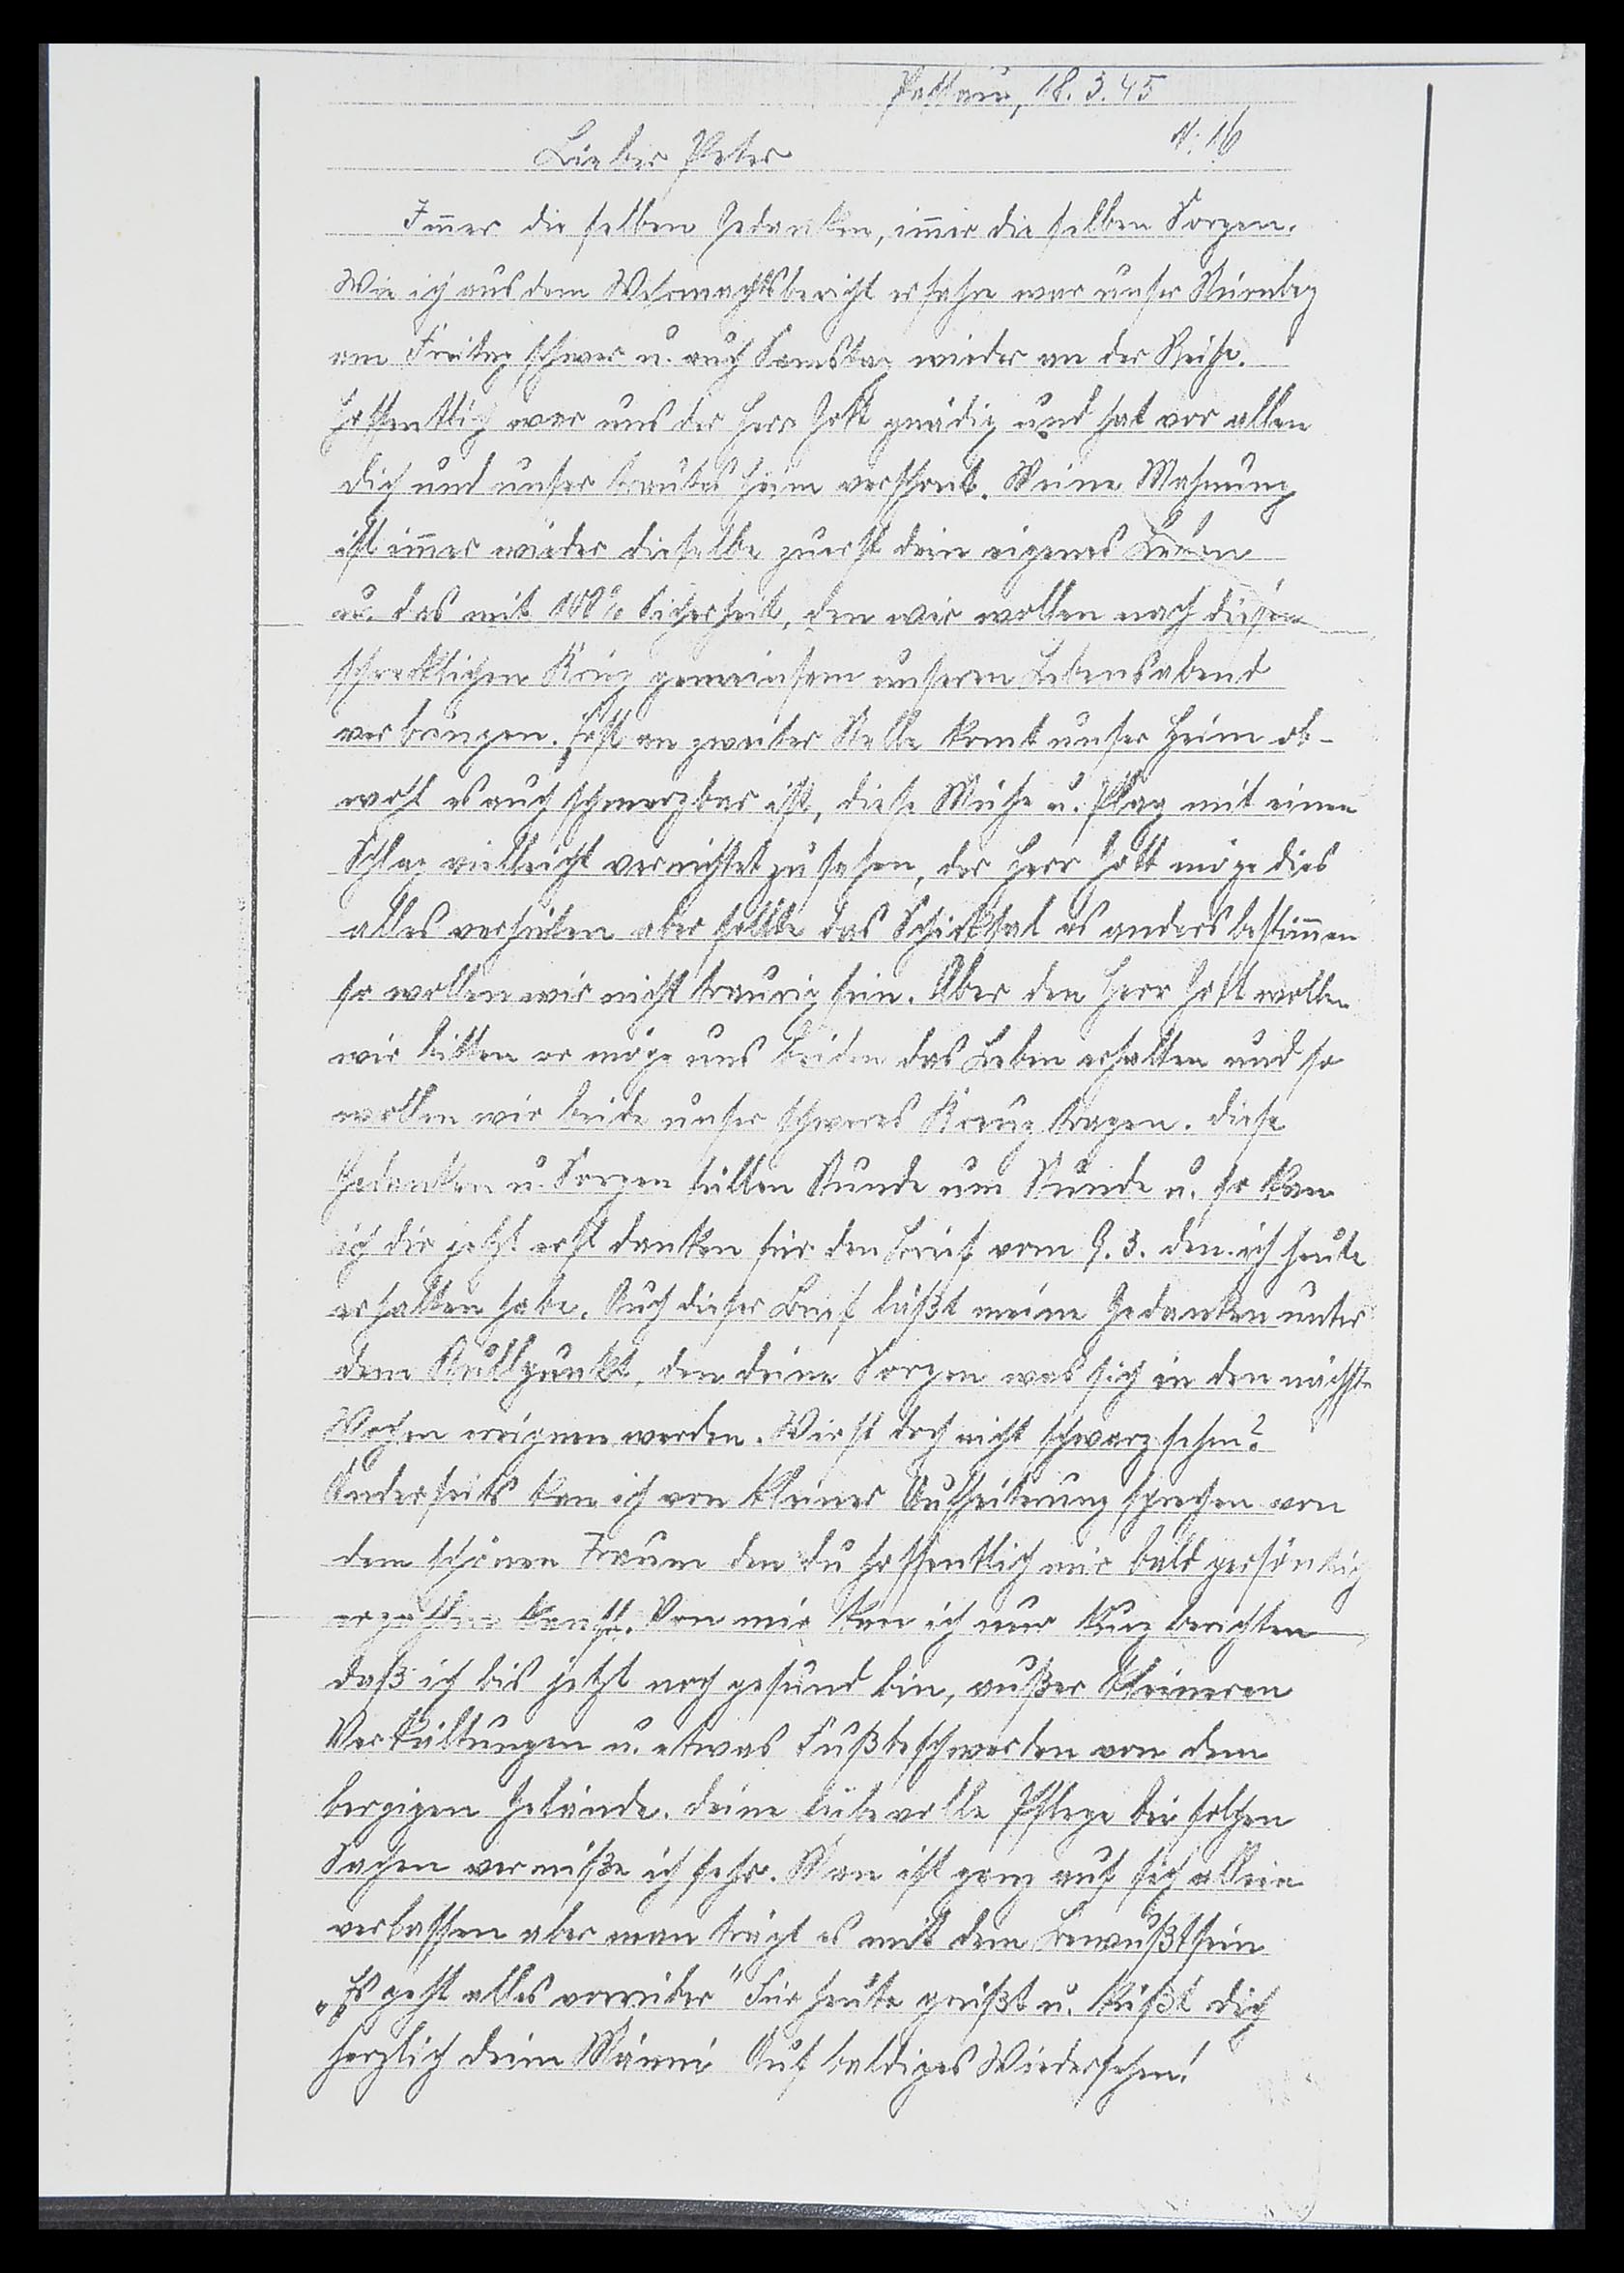 Passau, 18. 3. 45
N: 16
Lieber Peter
Im̅er die selben Gedanken, im̅er die selben Sorgen.
Wie ich aus dem Wehrmachtsbericht erfahre war unser Nürnbeg
am Freitag schwer u. auch Samstag wieder an der Reihe.
Hoffentlich war uns der Herr Gott gnädig und hat vor allen
dich und unser trautes Heim verschont. Meine Mahnung
ist im̅er wieder dieselbe zuerst dein eigenes Leben
u. das mit 100% Sicherheit, den wir wollen nach diesen
schrecklichen Krieg gemeinsam unseren Lebensabend
verbringen. Erst an zweiter Stelle komt unser Heim ob-
wohl es auch schmerzbar ist, diese Mühe u. Plag mit einen
Schlag vielleicht vernichtet zu sehen, der Herr Gott möge dies
alles verhüten aber sollte das Schicksal es anders bestim̅en
so wollen wir nicht traurig sein. Aber den Herr Gott wollen
wir bitten er möge uns beiden das Leben erhalten und so
wollen wir beide unser schweres Kreuz tragen. Diese
Gedanken u. Sorgen füllen Stunde um Stunde u. so kan
ich dir jetzt erst danken für den Brief vom 9. 3. den ich heute
erhalten habe. Auch dieser Brief läßt meine Gedanken unter
dem Nullpunkt, den deine Sorgen was sich in den nächste
Wochen ereignen werden. Wirst doch nicht schwarz sehen?
Anderseits kan ich von kleiner Aufheiterung sprechen von
dem schönen Traum den du hoffentlich mir bald persönlich
erzählen kanst. Von mir kan ich nur kurz berichten
daß ich bis jetzt noch gesund bin, außer kleineren
Verkältungen u. etwas Fußbeschwerden von dem
bergigen Gelände. Deine liebevolle Pflege bei solchen
Sachen vermiße ich sehr. Man ist ganz auf sich allein
verlassen aber man trägt es mit dem Bewußtsein
„Es geht alles vorrüber" Für heute grüßt u. küßt dich
herzlich dein Männi Auf baldiges Wiedersehen!